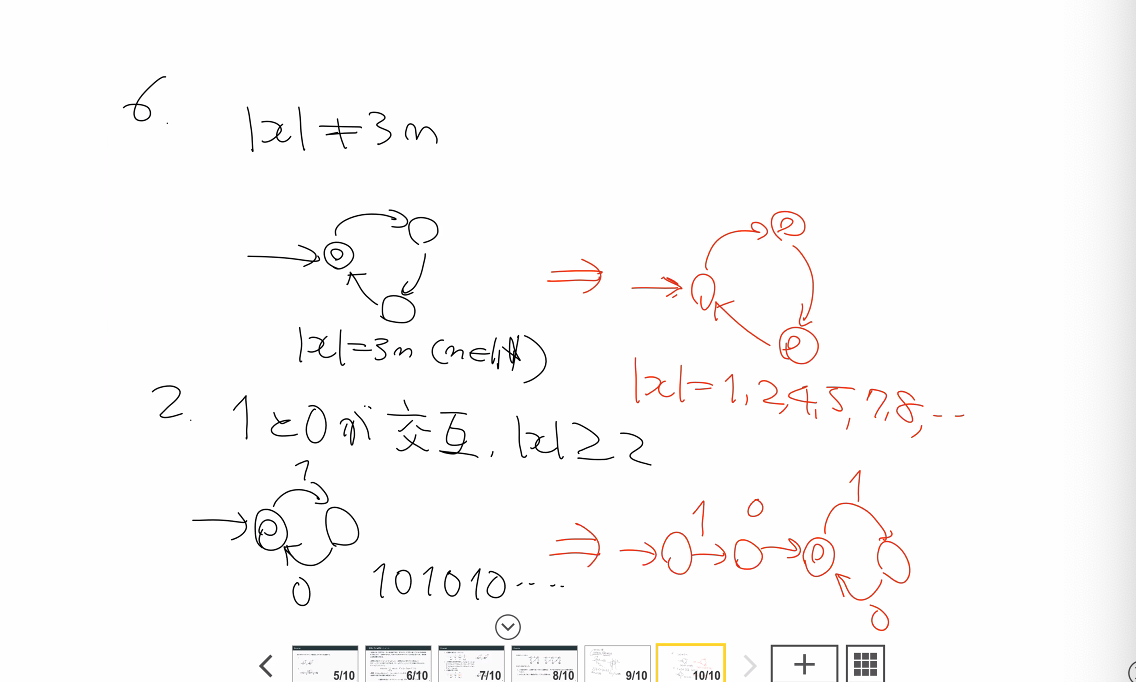 6.
|x|≠3n
|x|=3n (n∈ℕ)
|x|=1,2,4,5,7,8,…
2. 1と0が交互, |x|≥2
1
0
101010‥‥
1 0 1
0
5/10 6/10 7/10 8/10 9/10 10/10